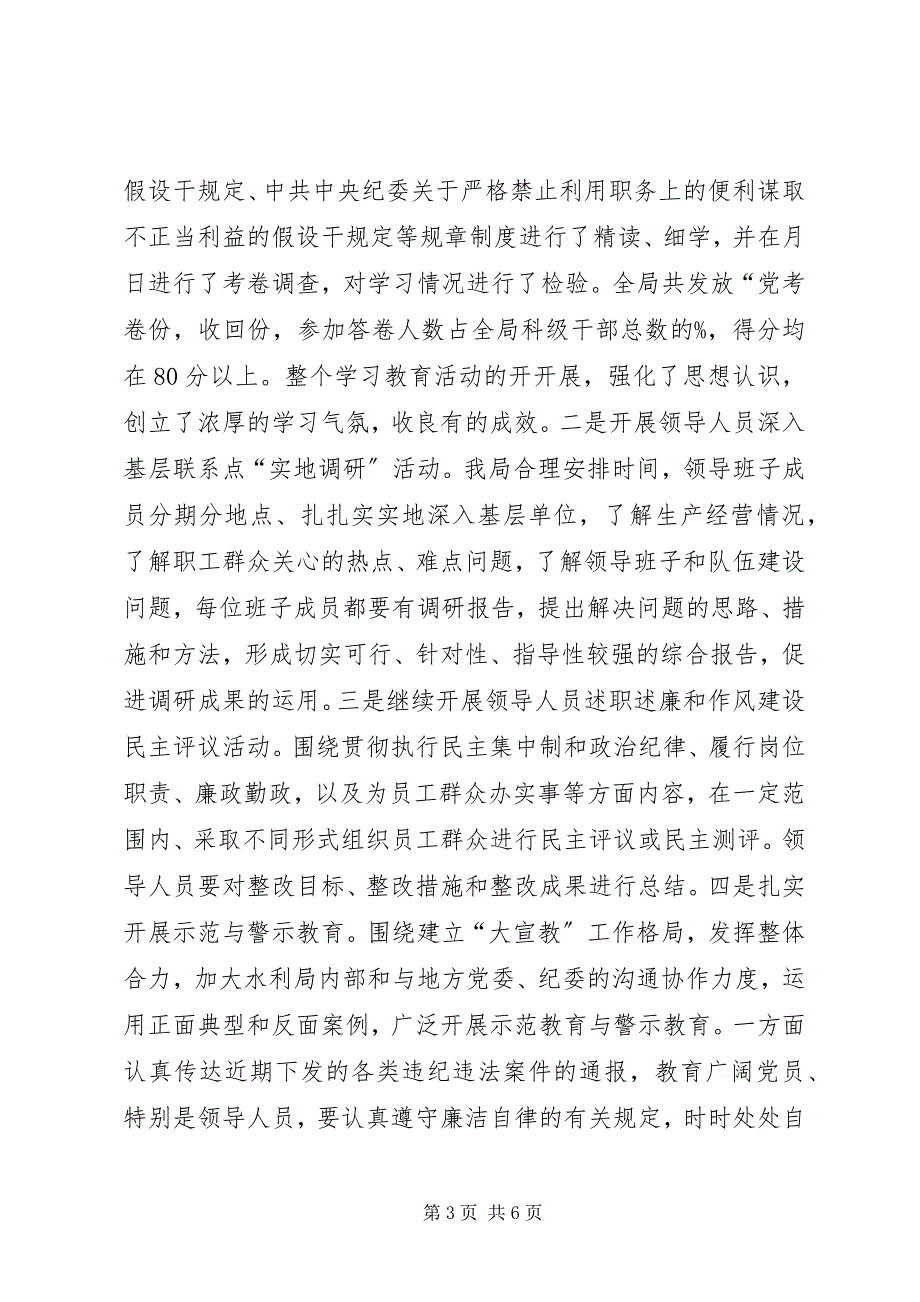 假设干规定、中共中央纪委关于严格禁止利用职务上的便利谋取
不正当利益的假设干规定等规章制度进行了精读、细学，并在月
日进行了考卷调查，对学习情况进行了检验。全局共发放“党考
卷份，收回份，参加答卷人数占全局科级干部总数的%，得分均
在 80 分以上。整个学习教育活动的开开展，强化了思想认识，
创立了浓厚的学习气氛，收良有的成效。二是开展领导人员深入
基层联系点“实地调研〞活动。我局合理安排时间，领导班子成
员分期分地点、扎扎实实地深入基层单位，了解生产经营情况，
了解职工群众关心的热点、难点问题，了解领导班子和队伍建设
问题，每位班子成员都要有调研报告，提出解决问题的思路、措
施和方法，形成切实可行、针对性、指导性较强的综合报告，促
进调研成果的运用。三是继续开展领导人员述职述廉和作风建设
民主评议活动。围绕贯彻执行民主集中制和政治纪律、履行岗位
职责、廉政勤政，以及为员工群众办实事等方面内容，在一定范
围内、采取不同形式组织员工群众进行民主评议或民主测评。领
导人员要对整改目标、整改措施和整改成果进行总结。四是扎实
开展示范与警示教育。围绕建立“大宣教〞工作格局，发挥整体
合力，加大水利局内部和与地方党委、纪委的沟通协作力度，运
用正面典型和反面案例，广泛开展示范教育与警示教育。一方面
认真传达近期下发的各类违纪违法案件的通报，教育广阔党员、
特别是领导人员，要认真遵守廉洁自律的有关规定，时时处处自
第 3 页 共 6 页